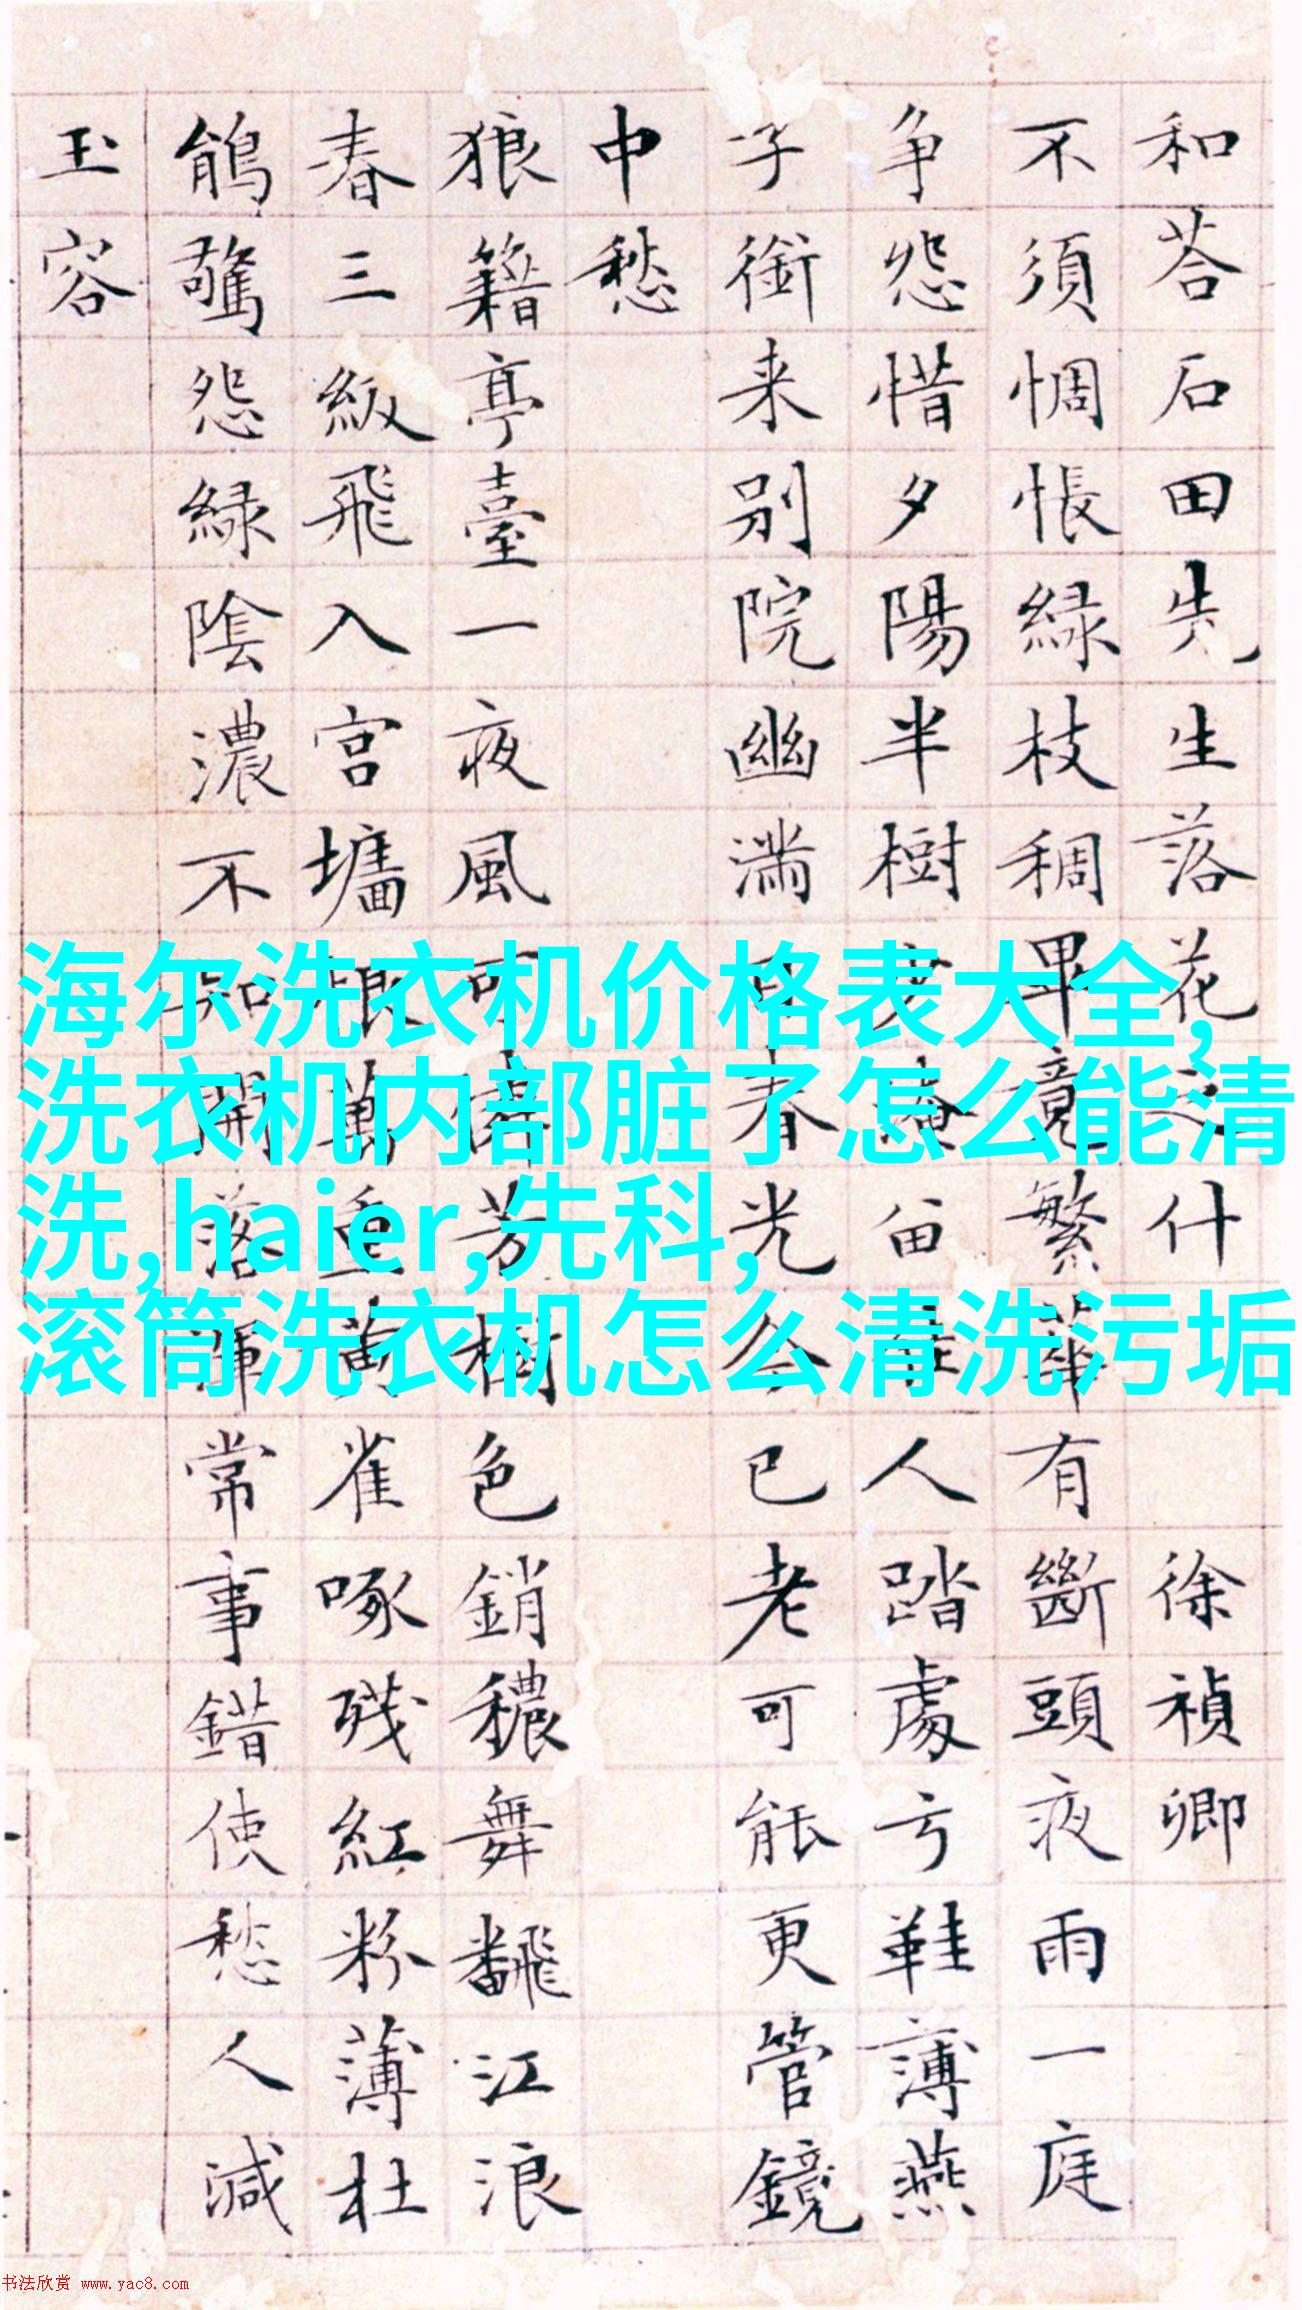 和荅石田先生落花之什 徐禎卿
不須惆悵綠枝稠畢竟繁華有斷頭夜雨一庭
争怨惜夕陽半樹
畱
人踏處亏鞋薄燕
子銜来别院幽滿
春光今已老可能更管鏡
中愁
狼籍亭臺一夜風可憐芳樹色銷穠舞飜江浪
春三級飛入宫墻
萬重黄雀啄残紅粉薄杜
鵑驚怨緑陰濃不知開落渾常事錯使愁人減
玉容
海尔洗衣机价格表大全,
洗衣机内部脏了怎么能清
洗,haier,先科,
滚筒洗衣机怎么清洗污垢
书法欣赏 www.yac8.com